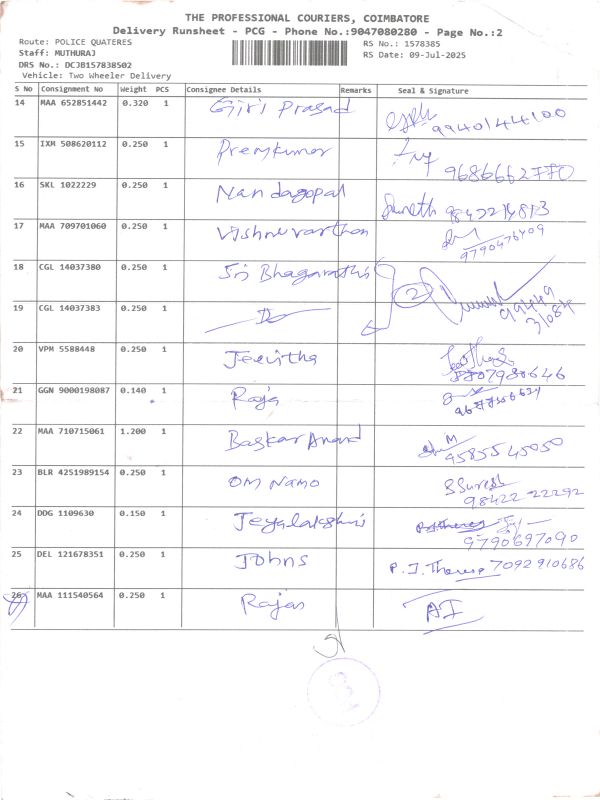 THE PROFESSIONAL COURIERS, COIMBATORE
Delivery Runsheet - PCG - Phone No.:9047080280 - Page No.:2
Route: POLICE QUATERES RS No.: 1578385
Staff: MUTHURAJ RS Date: 09-Jul-2025
DRS No.: DCJB157838502
Vehicle: Two Wheeler Delivery
S No Consignment No Weight PCS Consignee Details Remarks Seal & Signature
14 MAA 652851442 0.320 1 Giri Prasad
9940144100
15 IXM 508620112 0.250 1 Premkumar
9686662770
16 SKL 1022229 0.250 1 Nandagopal
17 MAA 709701060 0.250 1 Vishnuvarthan
9790476409
18 CGL 14037380 0.250 1 Sri Bhagarathi 2
19 CGL 14037383 0.250 1
20 VPM 5588448 0.250 1 Jeevitha
21 GGN 9000198087 0.140 1 Raja
22 MAA 710715061 1.200 1 Baskar Anand
9585545050
23 BLR 4251989154 0.250 1 OM Namo S Suresh
98422 22292
24 DDG 1109630 0.150 1 Jeyalakshmi
9790697090
25 DEL 121678351 0.250 1 Johns P.J. Therese 7092910686
26 MAA 111540564 0.250 1 Rajan